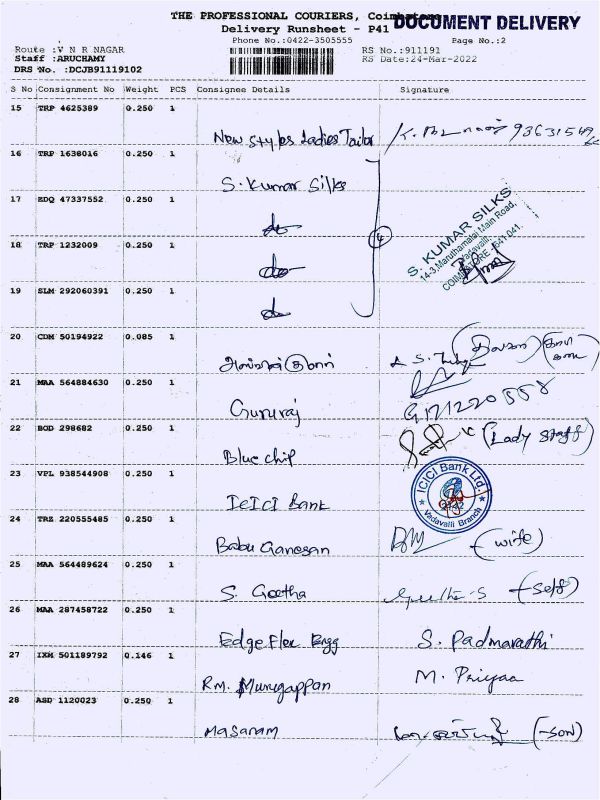 THE PROFESSIONAL COURIERS,
DOCUMENT DELIVERY
Delivery Runsheet - P41
Phone No.:0422-3505555
Page No.:2
Route :V N R NAGAR
RS No.:911191
Staff :ARUCHAMY
RS Date:24-Mar-2022
DRS No. :DCJB91119102
S No Consignment No Weight PCS Consignee Details Signature
15 TRP 4625389 0.250 1
New Styles Ladies Tailor
16 TRP 1638016 0.250 1
S. Kumar Silks
17 EDQ 47337552 0.250 1
do
4
S. KUMAR SILKS
14-3, Maruthamalai Main Road,
Vadavalli,
COIMBATORE - 641 041.
18 TRP 1232009 0.250 1
do
19 SLM 292060391 0.250 1
do
20 CDM 50194922 0.085 1
21 MAA 564884630 0.250 1
Gururaj
22 BOD 298682 0.250 1
Blue chip (Lady staff)
23 VPL 938544908 0.250 1
ICICI Bank
ICICI Bank Ltd.
Vadavalli Branch
24 TRZ 220555485 0.250 1
Babu Ganesan (wife)
25 MAA 564489624 0.250 1
S. Geetha Geetha-S (Self)
26 MAA 287458722 0.250 1
Edge Flex Engg S. Padmavathi
27 IXM 501189792 0.146 1
RM. Murugappan M. Priyaa
28 ASD 1120023 0.250 1
Masanam (-son)